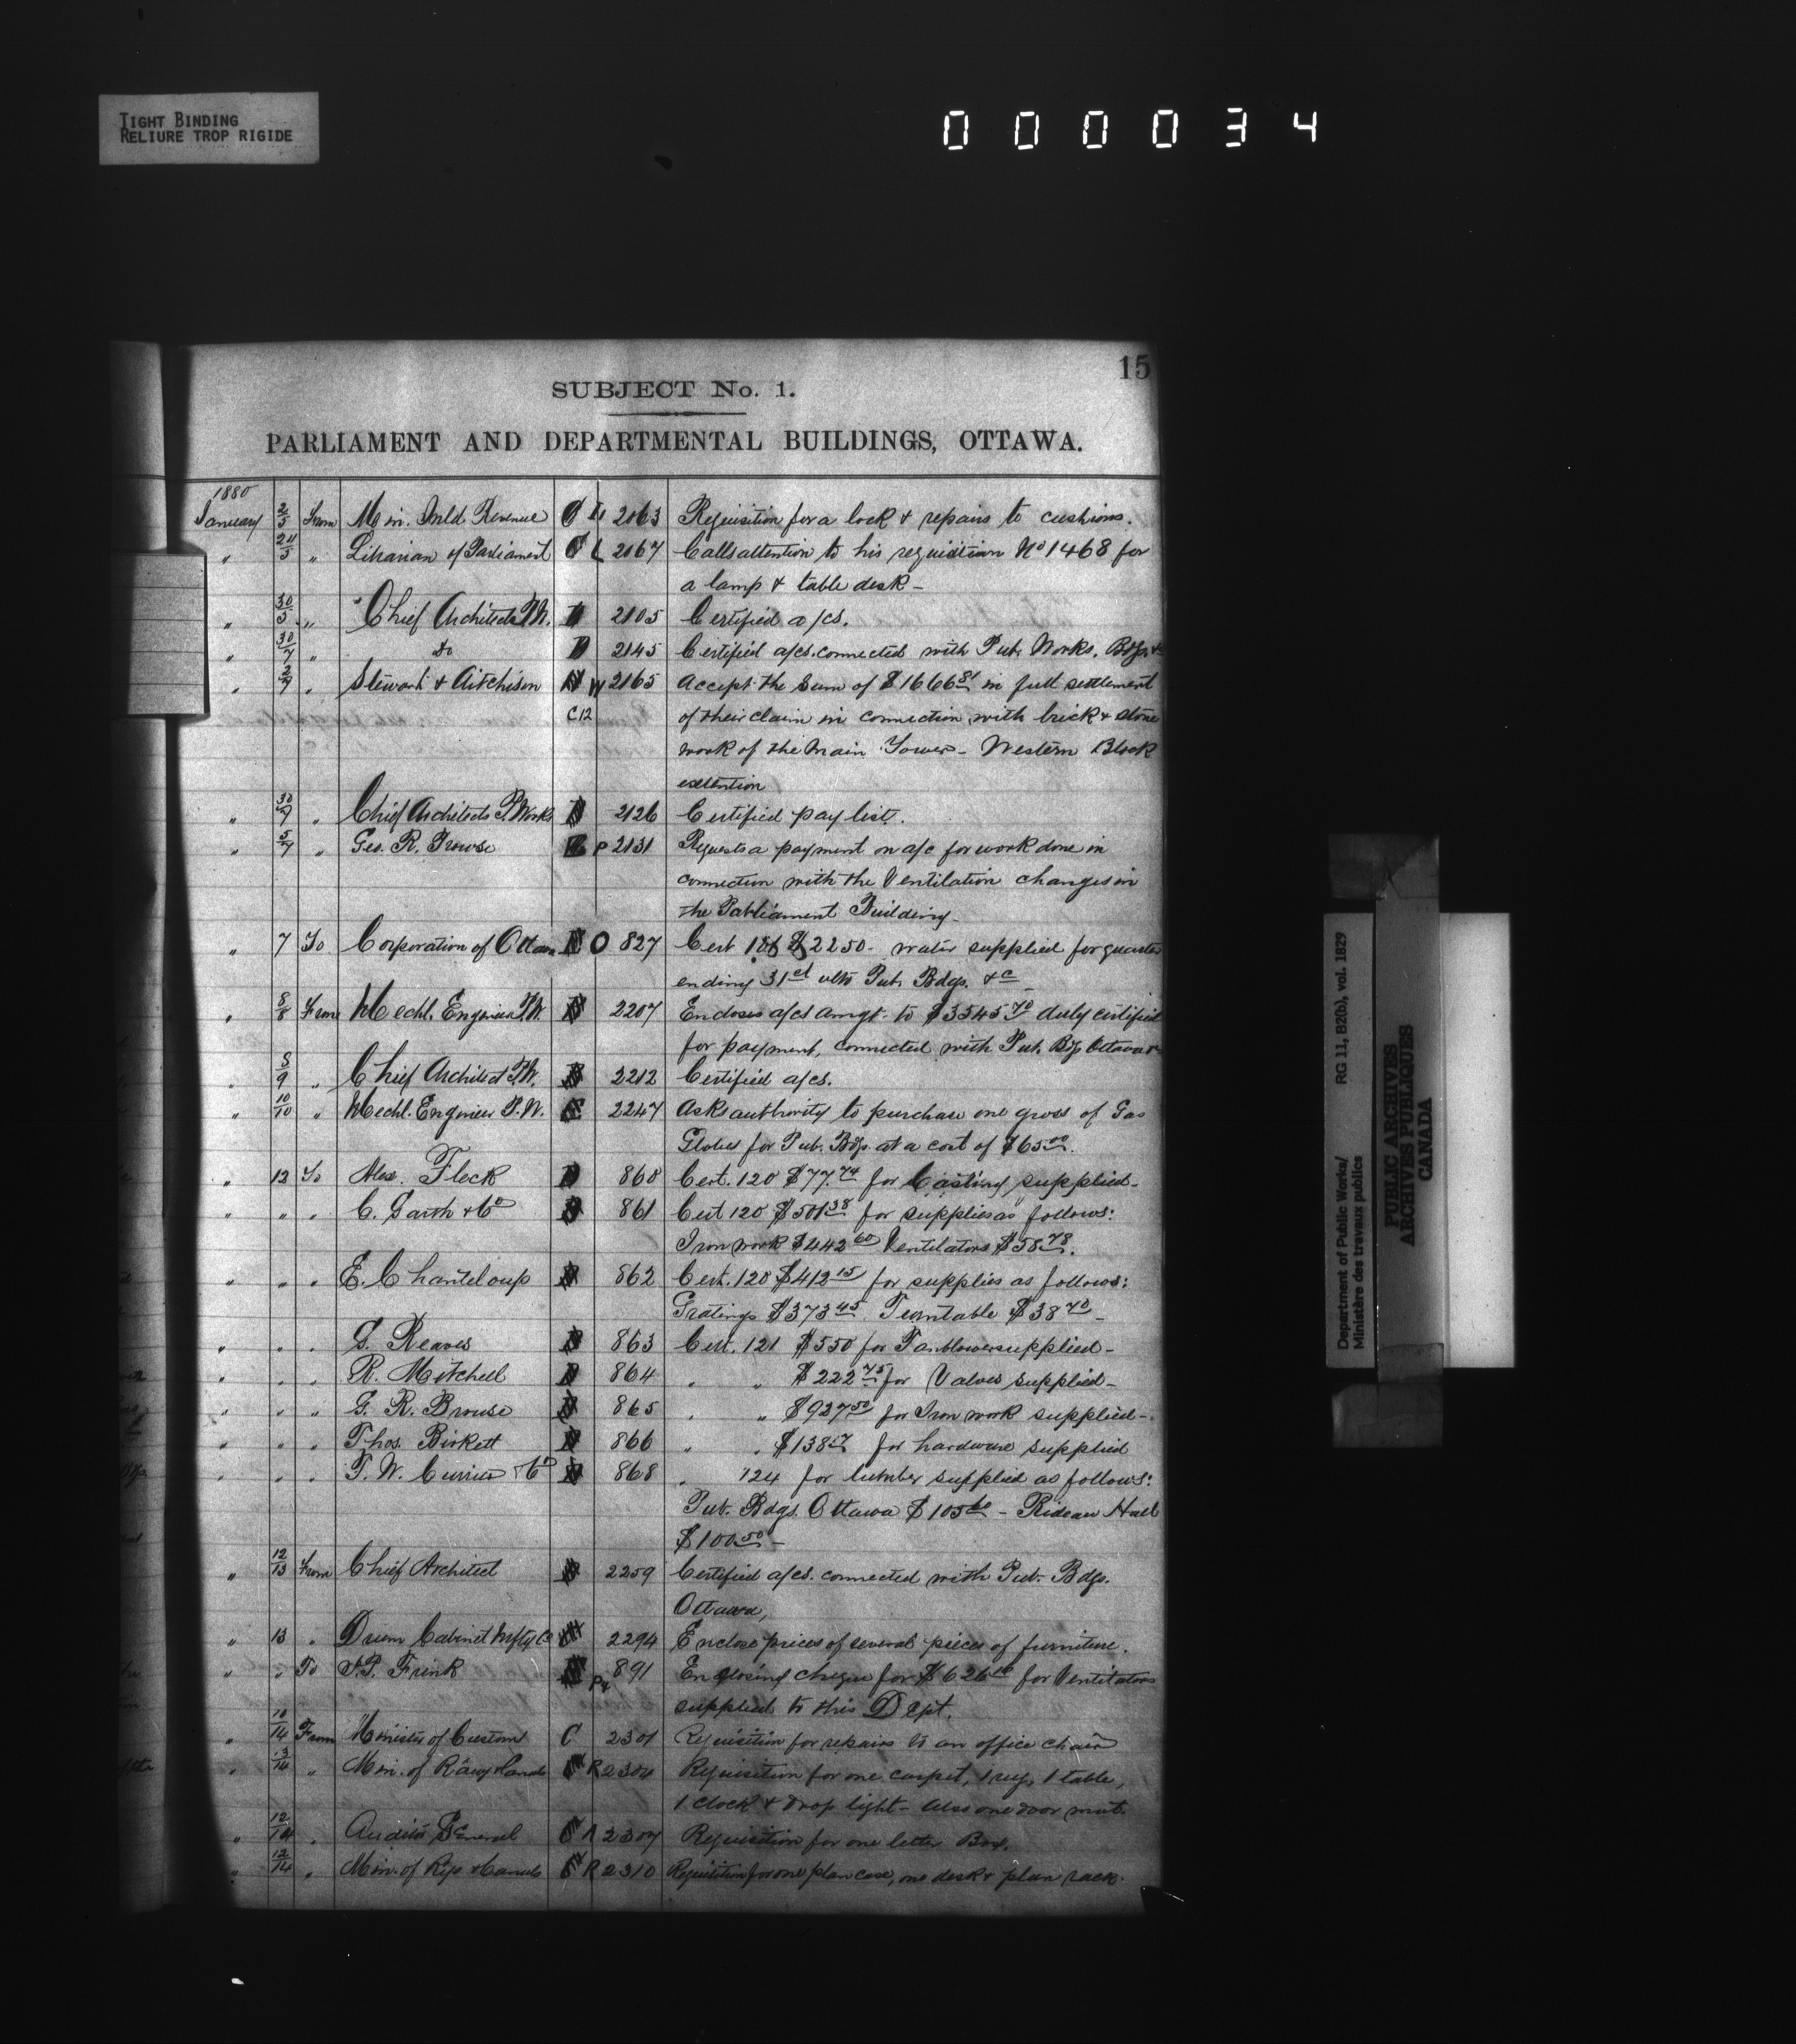 TIGHT BINDING
RELIURE TROP RIGIDE
000034
15
SUBJECT No. 1.
PARLIAMENT AND DEPARTMENTAL BUILDINGS, OTTAWA.
1880
January 2/5 From Min. Inld Revenue 2063 Requisition for a lock & repairs to cushions.
" 24/5 " Librarian of Parliament L 2067 Calls attention to his requisition No 1468 for
a lamp & table desk -
" 30/5 " Chief Architect P.W. 2105 Certified a/cs.
" 30/7 " Do 2145 Certified a/cs. connected with Pub. Works. Bdgs. &c
" 2/7 " Stewart & Aitchison W 2165 Accept the sum of $1666.81 in full settlement
C12 of their claim in connection with brick & stone
work of the Main Tower - Western Block
extention
" 30/7 " Chief Architects P. Works 2126 Certified pay list.
" 5/7 " Geo. R. Prowse P 2131 Requests a payment on a/c for work done in
connection with the Ventilation changes in
the Parliament Building -
" 7 To Corporation of Ottawa O 827 Cert 106 $2250 - water supplied for quarter
ending 31st ulto Pub. Bdgs. &c -
" 8/8 From Mechl. Engineer P.W. 2207 Encloses a/cs amgt. to $3545.70 duly certified
for payment, connected with Pub. Bdgs Ottawa
" 8/9 " Chief Architect P.W. 2212 Certified a/cs.
" 10/10 " Mechl. Engineer P.W. 2247 Asks authority to purchase one gross of Gas
Globes for Pub. Bdgs. at a cost of $65.00.
" 12 To Alex. Fleck 860 Cert. 120 $77.74 for Casting supplied -
" " " C. Garth & Co 861 Cert 120 $501.38 for supplies as follows:
Iron work $442.60 Ventilators $58.78.
" " " E. Chanteloup 862 Cert. 120 $412.15 for supplies as follows:
Gratings $373.45 Turntable $38.70 -
" " " G. Reaves 863 Cert. 121 $550 for Fanblower supplied -
" " " R. Mitchell 864 " " $222.75 for Valves supplied -
" " " G. R. Prowse 865 " " $927.50 for Iron work supplied -
" " " Thos. Birkett 866 " " $138.17 for hardware supplied
" " " T. W. Currier & Co 868 " 124 for lumber supplied as follows:
Pub. Bdgs. Ottawa $105.60 - Rideau Hall
$100.50 -
" 12/13 From Chief Architect 2259 Certified a/cs. connected with Pub. Bdgs.
Ottawa,
" 13 " Drum Cabinet Mfty Co 2294 Enclose prices of several pieces of furniture.
" " To J.P. Frink 891 Enclosing cheque for $626 for Ventilators
supplied to this Dept.
" 10/14 From Minister of Customs C 2301 Requisition for repairs to an office chair
" 13/14 " Min. of Railwy & Canals R 2304 Requisition for one carpet, 1 rug, 1 table,
1 clock & drop light - Also one door mat.
" 12/14 " Auditor General A 2307 Requisition for one letter Box.
" 12/14 " Min. of Rys & Canals R 2310 Requisition for one plan case, one desk & plan rack.
Department of Public Works/
Ministère des travaux publics
RG 11, B2(b), vol. 1829
PUBLIC ARCHIVES
ARCHIVES PUBLIQUES
CANADA